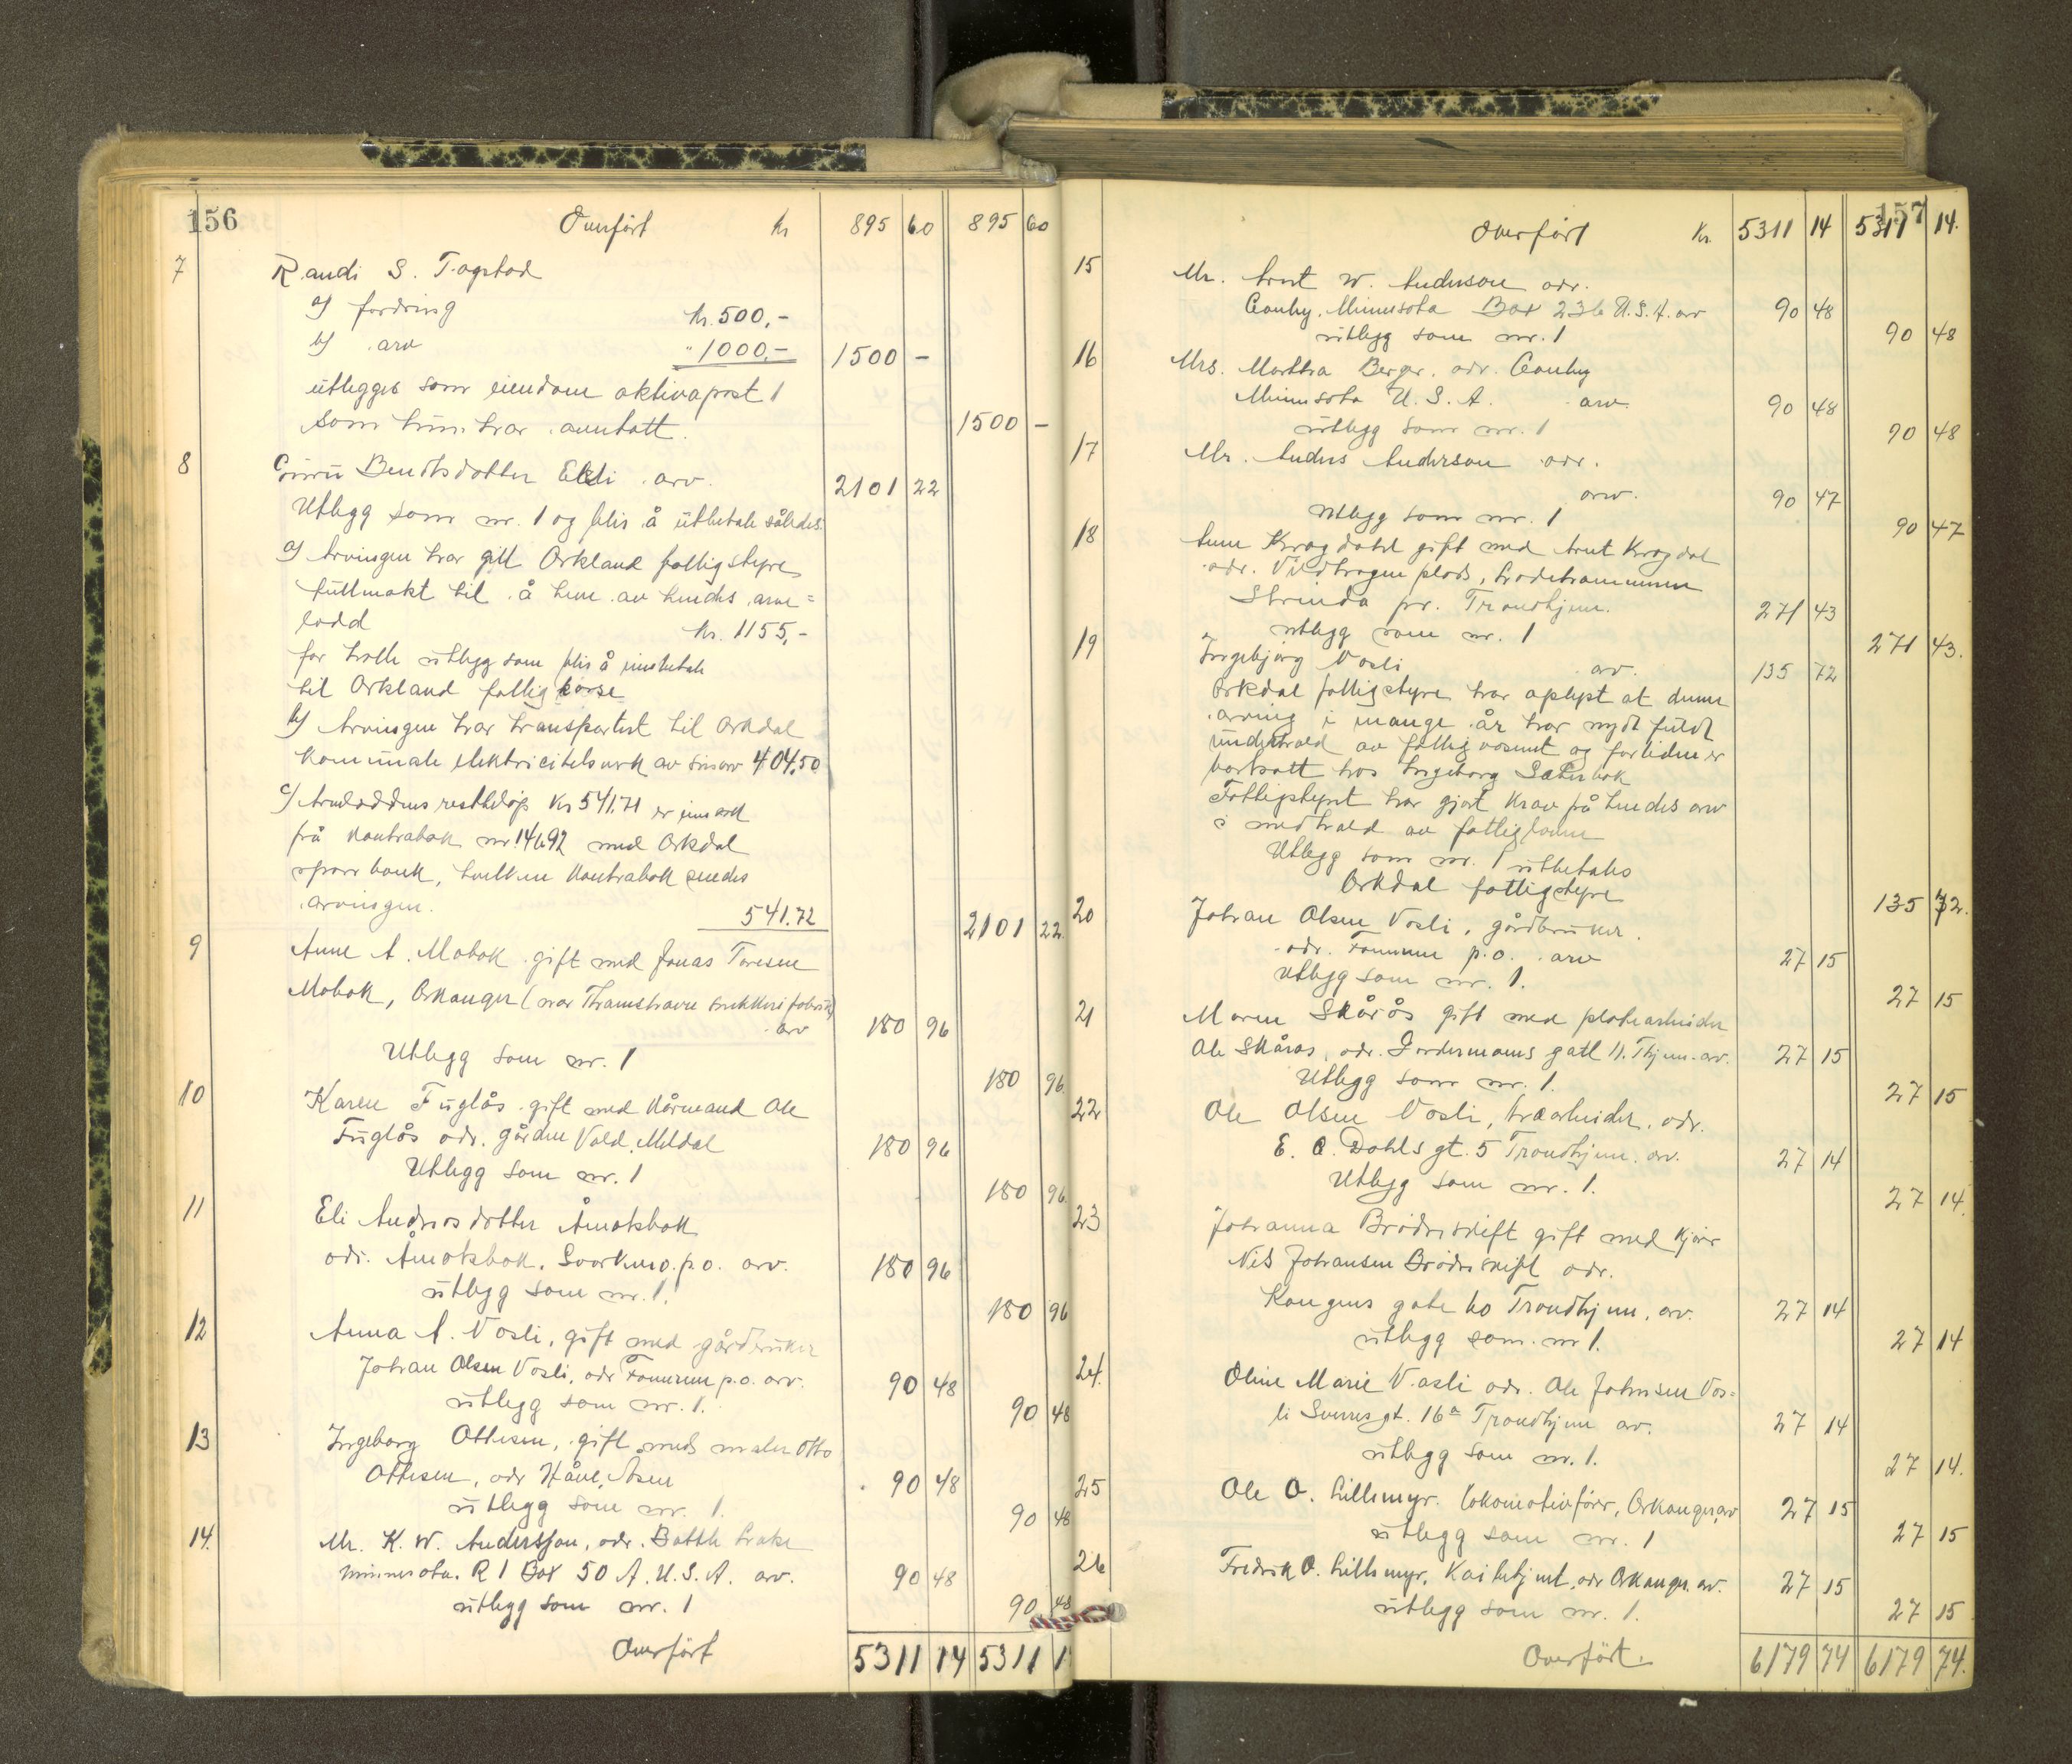 156
Overført Kr 895 60 895 60
7 Randi S. Togstad
a) fordring kr. 500,-
b) arv " 1000,- 1500 -
utlegges som eiendom aktivapost 1
som hun har anntatt. 1500 -
8 Guru Bendtsdatter Ekli arv. 2101 22
Utlegg som nr. 1 og blir å utbetale således:
a) Arvingen har gitt Orkland fattigstyre
fullmakt til å heve av hendes arve=
lodd kr. 1155,-
for hvilke utlegg som blir å innbetale
til Orkland fattigkasse
b) Arvingen har transportert til Orkdal
kommunale elektricitetsverk av sin arv 404,50
c) Arveloddens restbeløp Kr 541.71 er innsatt
på kontrabok nr 14692 med Orkdal
sparebank, hvilken kontrabok sendes
arvingen. 541.72 2101 22
9 Anne A. Mobak gift med Jonas Toresen
Mobak, Orkanger (nær Thamshavn fabrik)
arv 180 96
Utlegg som nr. 1 180 96
10 Karen Fuglås gift med Kårmand Ole
Fuglås adr. gården Vold, Meldal 180 96
Utlegg som nr. 1 180 96
11 Eli Andersdatter Åmotsbak
adr. Åmotsbak, Svorkmo p.o. arv. 180 96
utlegg som nr. 1. 180 96
12 Anna A. Vosli, gift med gårdbruker
Johan Olsen Vosli, adr Fannrem p.o. arv. 90 48
utlegg som nr. 1. 90 48
13 Ingeborg Ottesen, gift med maler Otto
Ottesen, adr Håne, Åsen 90 48
utlegg som nr. 1. 90 48
14. Mr. K. W. Andersson, adr. Battle Lake
Minnesota. R 1 Box 50 A. U.S.A. arv. 90 48
utlegg som nr. 1 90 48
Overført 5311 14 5311 1
157
Overført Kr. 5311 14 5311 14.
15 Mr. Arnt W. Anderson adr.
Canby, Minnesota Box 236 U.S.A. arv 90 48
utlegg som nr. 1 90 48
16 Mrs. Marttha Berger. adr. Canby
Minnesota U.S.A. arv. 90 48
utlegg som nr. 1 90 48
17 Mr. Anders Anderson adr.
arv. 90 47
utlegg som nr. 1 90 47
18 Anne Krogdahl gift med Arnt Krogdal
adr. plads, Ladehammeren
Strinda pr. Trondhjem. 271 43
utlegg som nr. 1 271 43.
19 Ingebjørg Vosli arv. 135 72
Orkdal fattigstyre har oplyst at denne
arving i mange år har nydt fuldt
underhold av fattigvesenet og for tiden er
bortsatt hos Ingeborg Sæterbak
Fattigstyret har gjort krav på hendes arv
i medhald av fattigloven
Utlegg som nr. 1 utbetales
Orkdal fattigstyre 135 72.
20 Johan Olsen Vosli, gårdbruker.
adr. Fannrem p.o. arv 27 15
Utlegg som nr. 1. 27 15
21 Maren Skårås gift med platearbeider
Ole Skårås, adr. Gardermoens gate 11. Thjem. arv. 27 15
Utlegg som nr. 1. 27 15
22 Ole Olsen Vosli, træarbeider, adr.
E. C. Dahls gt. 5 Trondhjem. arv. 27 14
Utlegg som nr. 1. 27 14.
23 Johanna Brødreskift gift med kjører
Nils Johansen Brødreskift adr.
Kongens gate 60 Trondhjem, arv. 27 14
utlegg som nr 1. 27 14
24. Oline Marie Vasli adr. Ole Johnsen Vos=
li Sverres gt. 16a Trondhjem arv. 27 14
utlegg som nr. 1. 27 14.
25 Ole O. Lillemyr. lokomotivfører, Orkanger, arv 27 15
utlegg som nr. 1 27 15
26 Fredrik O. Lillemyr, adr Orkanger. arv. 27 15
utlegg som nr. 1. 27 15
Overført. 6179 74 6179 74.